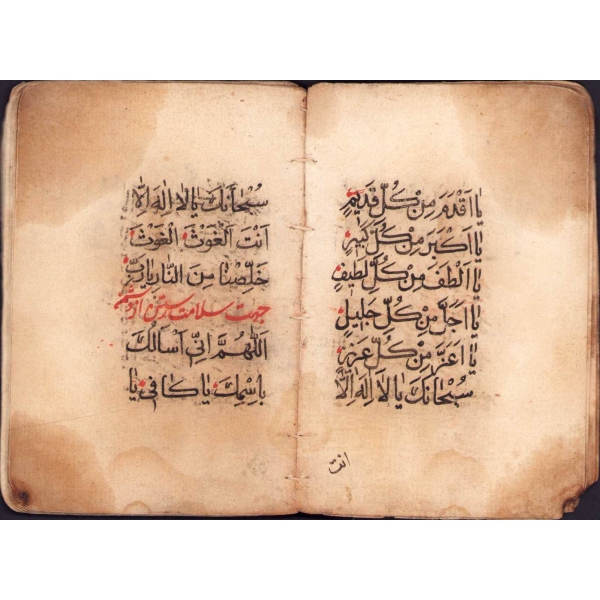 يَا اَقْدَمَ مِنْ كُلِّ قَدِيمٍ
يَا اَكْبَرَ مِنْ كُلِّ كَبِيرٍ
يَا اَلْطَفَ مِنْ كُلِّ لَطِيفٍ
يَا اَجَلَّ مِنْ كُلِّ جَلِيلٍ
يَا اَعَزَّ مِنْ كُلِّ عَزِيزٍ
سُبْحَانَكَ يَا لَا اِلٰهَ اِلَّا
انت
سُبْحَانَكَ يَا لَا اِلٰهَ اِلَّا
اَنْتَ الْغَوْثَ الْغَوْثَ
خَلِّصْنَا مِنَ النَّارِ يَا رَبِّ
جهت سلامت
اَللّٰهُمَّ اِنِّي اَسْاَلُكَ
بِاسْمِكَ يَا كَافِي يَا